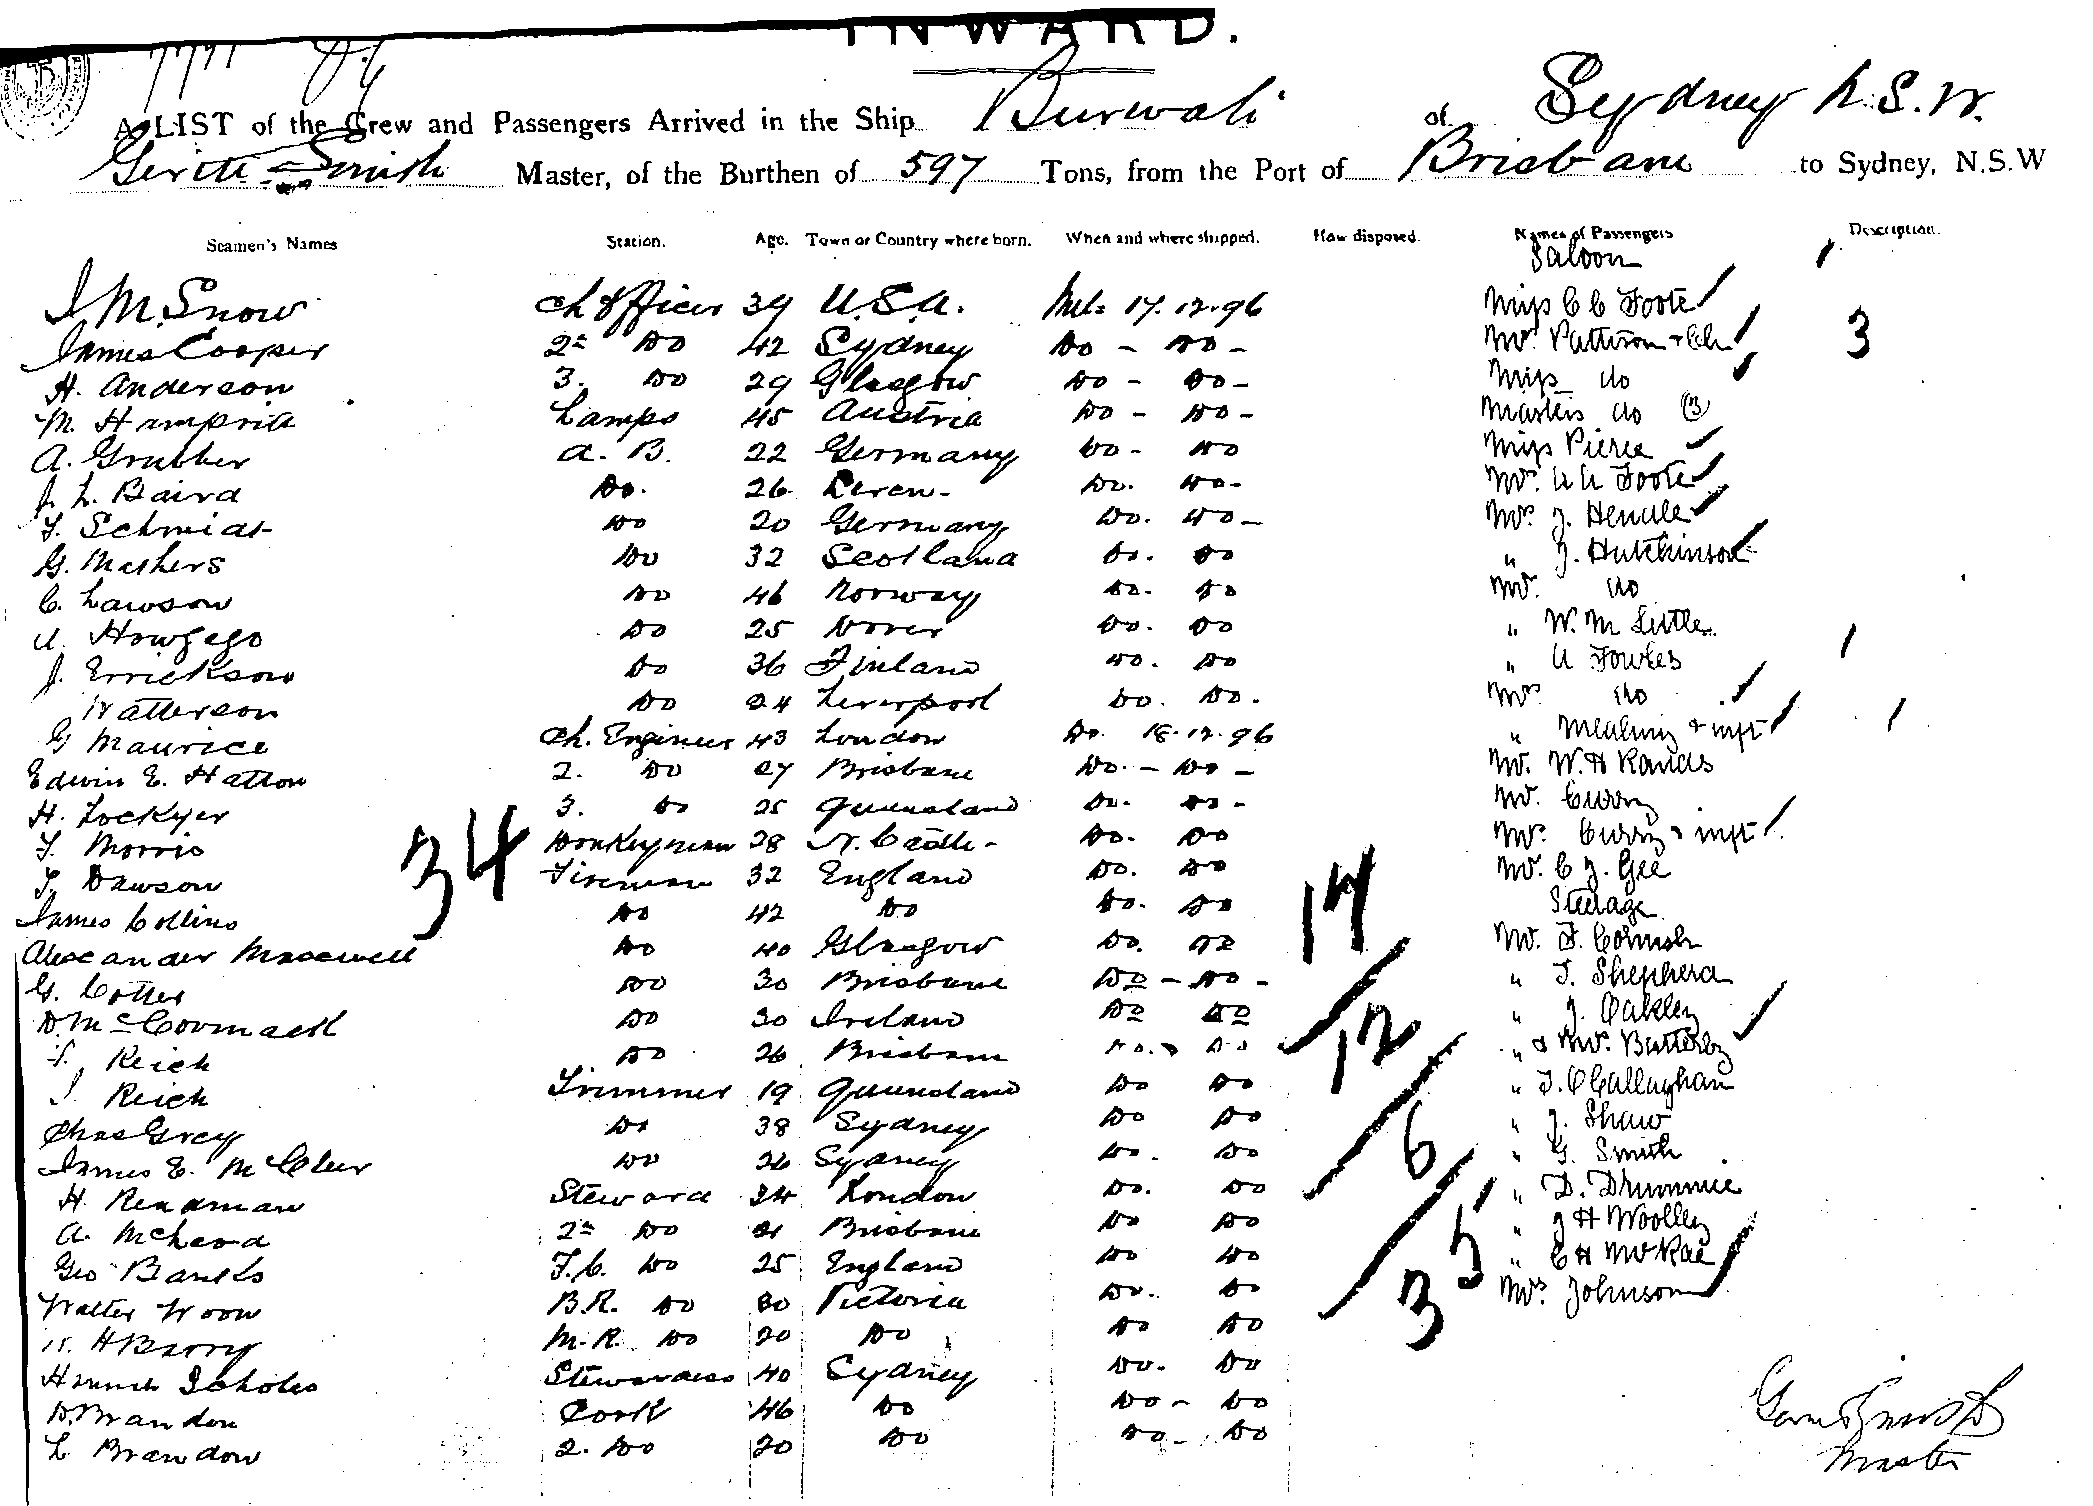 INWARD.
A LIST of the Crew and Passengers Arrived in the Ship Burwah of Sydney N.S.W.
Smith Master, of the Burthen of 597 Tons, from the Port of Brisbane to Sydney, N.S.W
Seamen's Names Station. Age. Town or Country where born. When and where shipped. How disposed. Names of Passengers Description.
Saloon
I M. Snow Ch Officer 39 U.S.A. 17.12.96 Miss C C Foote
James Cooper 2nd Do 42 Sydney Do - Do - Mr. Pattison + Ch 3
H. Anderson 3. Do 29 Glasgow Do - Do - Miss do
M. Lamps 45 Austria Do - Do - Masters do (3)
A. Grubber A. B. 22 Germany Do - Do Miss Pierce
J. L. Baird Do. 26 Do. Do - Mr. A A Foote
F. Schmidt Do 20 Germany Do. Do - Mrs J. Hendle
G. Mathers Do 32 Scotland Do. Do " J. Hutchinson
C. Lawson Do 46 Norway Do. Do Mr. do
A. Howgego Do 25 Dover Do. Do " W. M Little
J. Errickson Do 36 Finland Do. Do " A Fowles
Watterson Do 24 Liverpool Do. Do. Mrs do
G Maurice Ch. Engineer 43 London Do. 18.12.96 " Mealing & inft
Edwin E. Hatton 2. Do 27 Brisbane Do. - Do - Mr. W. H Rands
H. Lockyer 3. Do 25 Queensland Do. Do - Mr. Curry
T. Morris Donkeyman 38 N. Castle - Do. Do Mrs. Curry & inft
T. Dawson 34 Fireman 32 England Do. Do 17 Mr. C J. Gee
James Collins Do 42 Do Do. Do Steerage
Alexander Maxwell Do 40 Glasgow Do. Do Mr. F. Cornish
G. Cotter Do 30 Brisbane Do - Do - " T. Shepherd
D. McCormack Do 30 Ireland Do Do 12 " J. Oakley
Reich Do 26 Brisbane Do. Do " & Mrs. Batterby
Reich Trimmer 19 Queensland Do Do " T. O Callaghan
Chas Grey Do 38 Sydney Do Do 6 " J. Shaw
James E. McCleer Do 26 Sydney Do. Do " G. Smith
H. Readman Steward 34 London Do. Do " D. Drummie
A. McLeod 2nd Do 21 Brisbane Do Do " J H Woolley
Geo Banks F.C. Do 25 England Do Do 35 " C H McRae
Walter Woon B.R. Do 30 Victoria Do. Do Mrs. Johnson
W. H Barry M.R. Do 20 Do Do Do
Hannah Scholes Stewardess 40 Sydney Do. Do
D. Brandon Cook 46 Do Do - Do
L Brandon 2. Do 20 Do Do - Do
Master